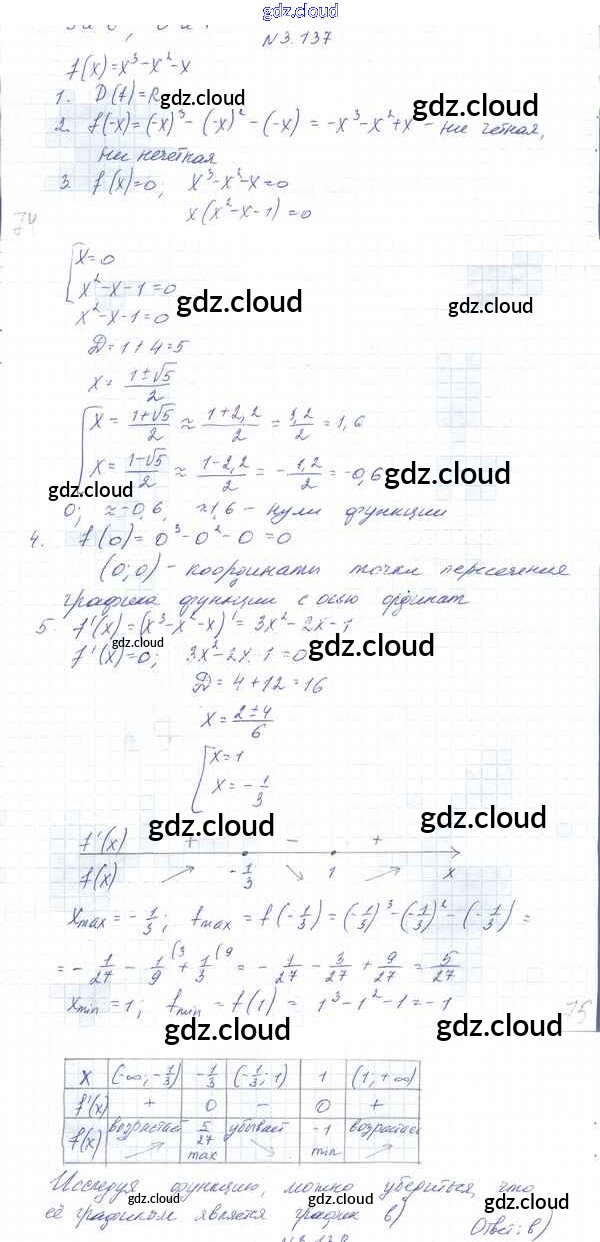 gdz.cloud
N3.137
f(x)=x³-x²-x
1. D(f)=R gdz.cloud gdz.cloud
2. f(-x)=(-x)³-(-x)²-(-x)=-x³-x²+x - ни четная,
ни нечетная
3. f(x)=0; x³-x²-x=0
x(x²-x-1)=0
74
x=0
x²-x-1=0
gdz.cloud gdz.cloud
x²-x-1=0
D=1+4=5
x=(1±√5)/2
x=(1+√5)/2≈(1+2,2)/2=3,2/2=1,6
x=(1-√5)/2≈(1-2,2)/2=-1,2/2=-0,6
gdz.cloud gdz.cloud
0; ≈-0,6, ≈1,6 - нули функции
4. f(0)=0³-0²-0=0
(0;0) - координаты точки пересечения
графика функции с осью ординат
5. f'(x)=(x³-x²-x)'=3x²-2x-1
gdz.cloud gdz.cloud
f'(x)=0; 3x²-2x-1=0
D=4+12=16
x=(2±4)/6
x=1
x=-1/3
gdz.cloud gdz.cloud
f'(x) + - +
f(x) ↗ -1/3 ↘ 1 ↗ x
xmax=-1/3; fmax=f(-1/3)=(-1/3)³-(-1/3)²-(-1/3)=
=-1/27-1/9(3+1/3(9=-1/27-3/27+9/27=5/27
xmin=1; fmin=f(1)=1³-1²-1=-1
75
gdz.cloud gdz.cloud
x (-∞;-1/3) -1/3 (-1/3;1) 1 (1;+∞)
f'(x) + 0 - 0 +
f(x) возрастает ↗ 5/27 max убывает ↘ -1 min возрастает ↗
Исследуя функцию, можно убериться, что
gdz.cloud gdz.cloud
её графиком является график в)
Ответ: в)